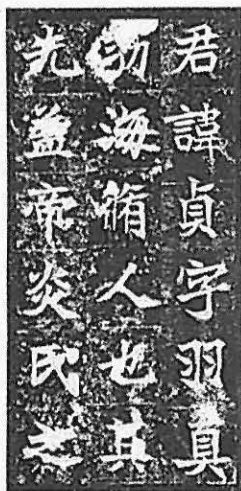 君諱貞字羽真
勃海脩人也其
先蓋帝炎氏之